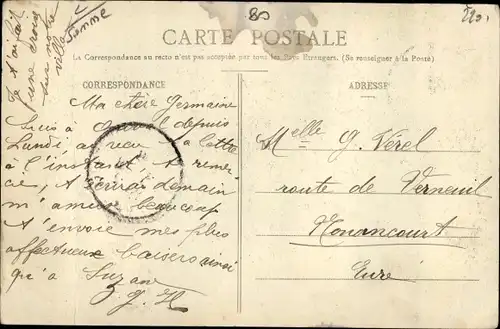 80
CARTE POSTALE
La Correspondance au recto n'est pas acceptée par tous les Pays Etrangers. (Se renseigner à la Poste)
CORRESPONDANCE
ADRESSE
Somme
Je t'ai fait
une croix
sur notre
ville
Ma chère Germaine
Suis à depuis
Lundi, ai reçu ta lettre
à l'instant te remer-
cie, t'écrirai demain
m'amuse beaucoup
t'envoie mes plus
affectueux baisers ainsi
qu'à Suzanne
G. H
Melle G. Vérel
route de Verneuil
Nonancourt
Eure